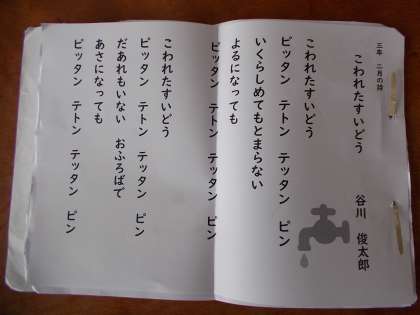 三年 二月の詩
こわれたすいどう
谷川 俊太郎
こわれたすいどう
ピッタン テトン テッタン ピン
いくらしめてもとまらない
よるになっても
ピッタン テトン テッタン ピン
こわれたすいどう
ピッタン テトン テッタン ピン
だあれもいない おふろばで
あさになっても
ピッタン テトン テッタン ピン